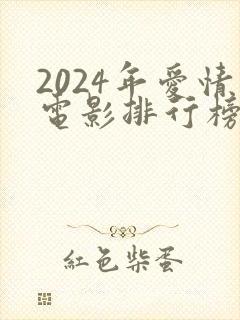 2024年愛情
電影排行榜
紅色柴蛋